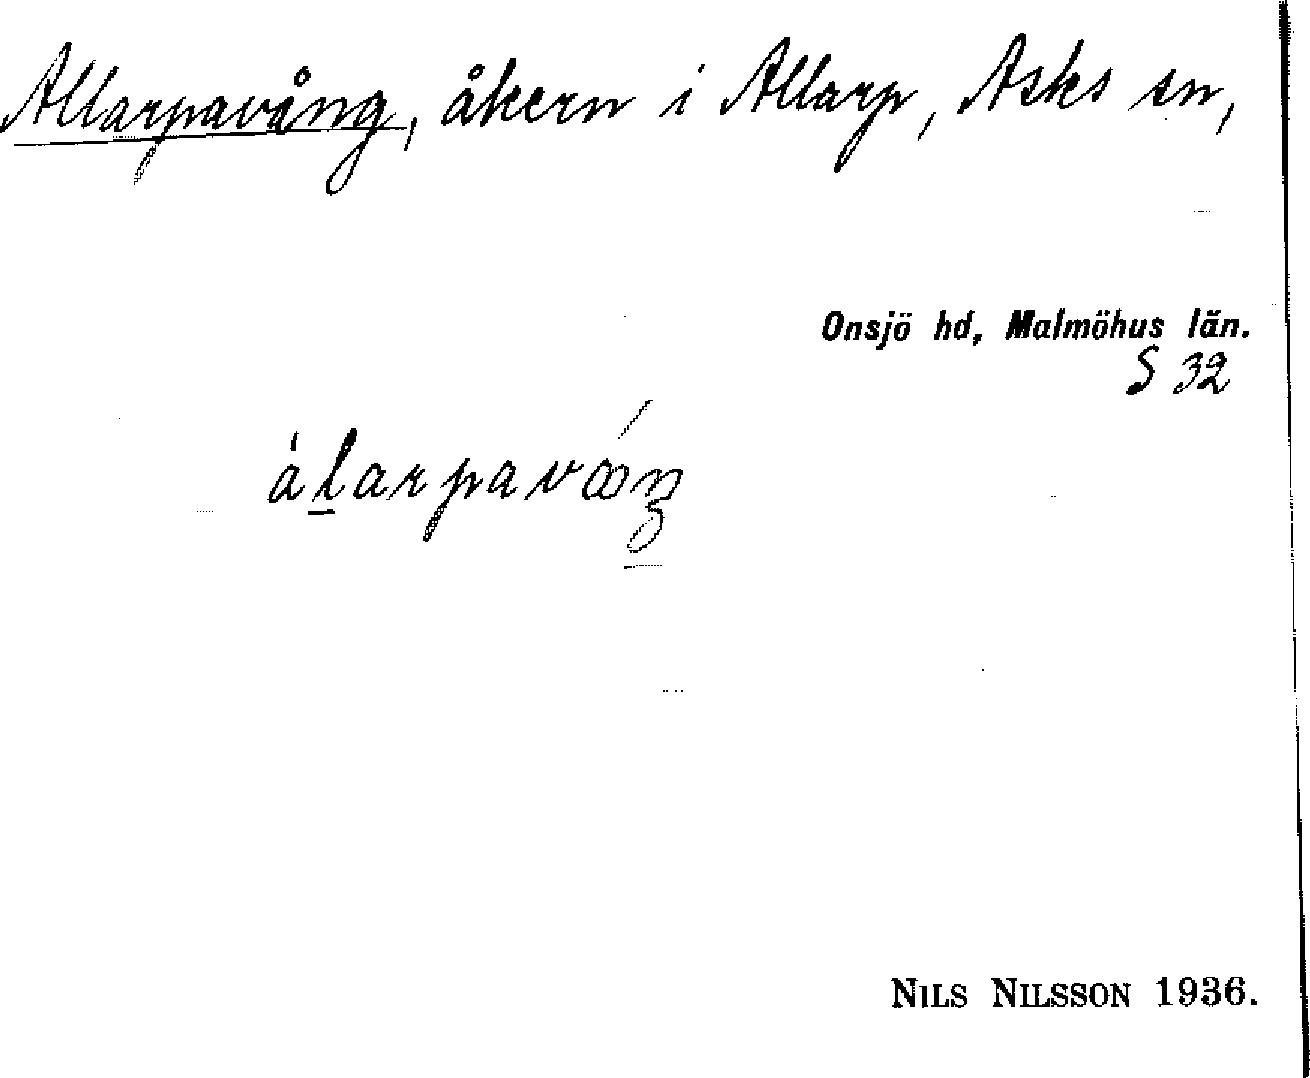 Allarpavång, åkern i Allarp, Asks sn,
Onsjö hd, Malmöhus län.
S 32
NILS NILSSON 1936.